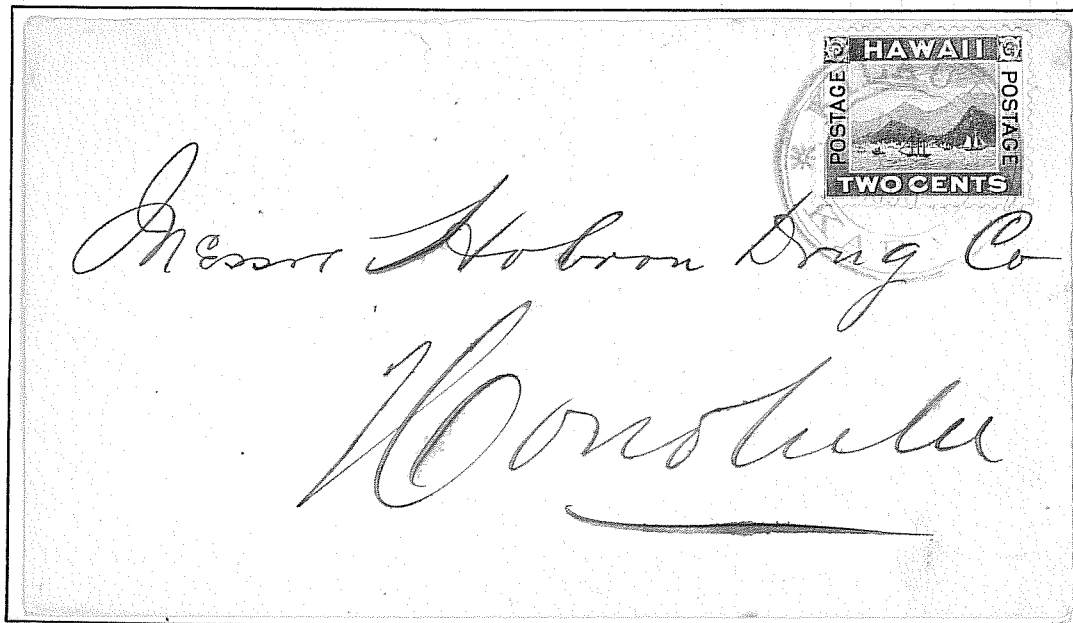 HAWAII
POSTAGE
POSTAGE
TWO CENTS
Messrs Hobron Drug Co
Honolulu